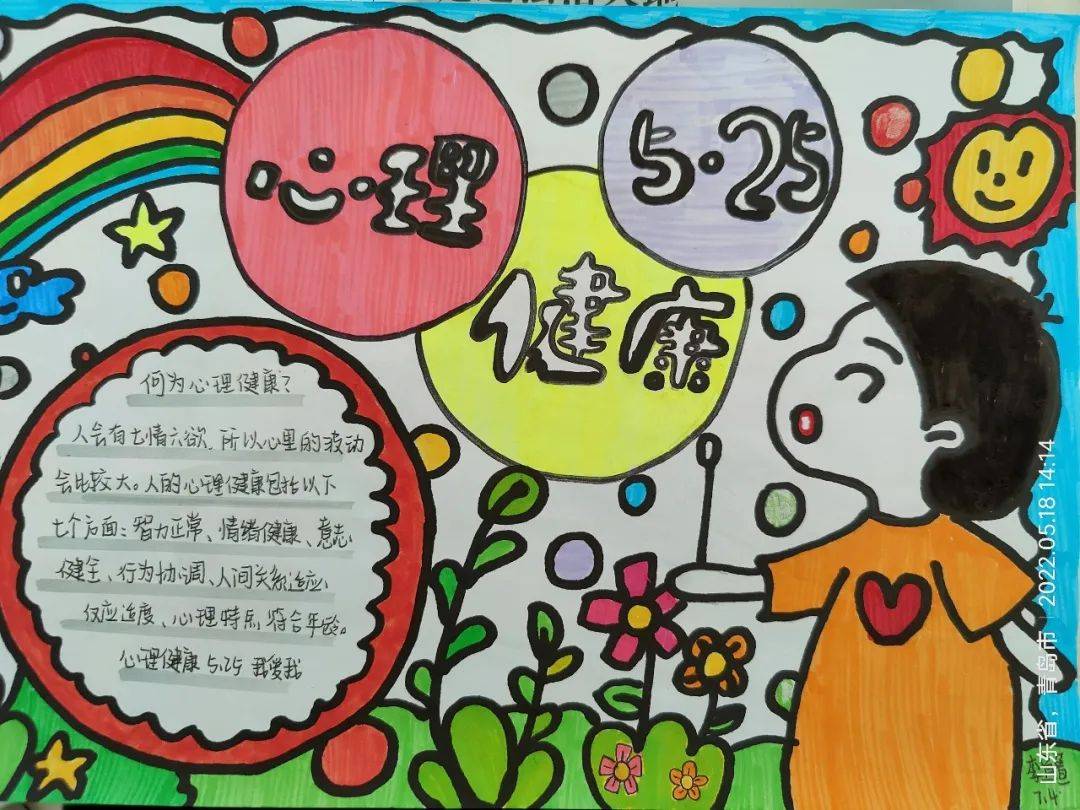 心·理
5·25
健康
何为心理健康?
人会有七情六欲,所以心里的波动
会比较大。人的心理健康包括以下
七个方面:智力正常、情绪健康、意志
健全、行为协调、人间关系适应、
仅应适度、心理特点符合年龄。
心理健康 5.25 我爱我
7.4
山东省,青岛市 | 2022.05.18 14:14